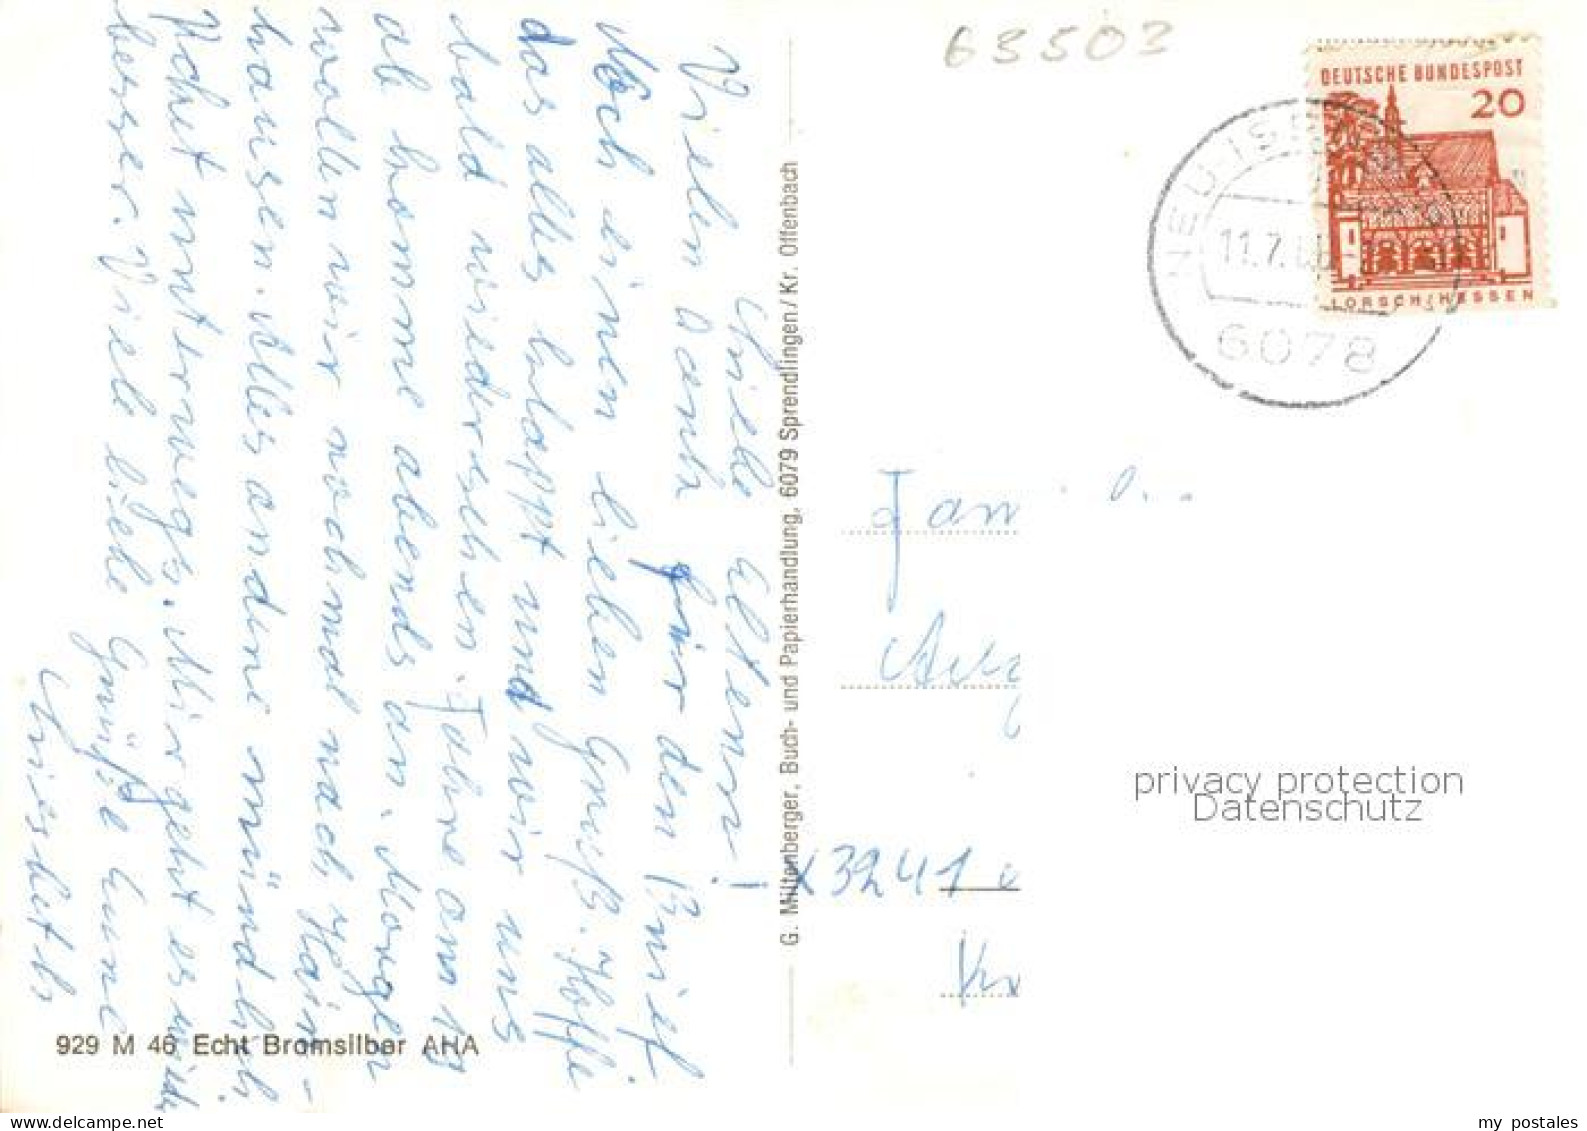 63503
DEUTSCHE BUNDESPOST
20
LORSCH/HESSEN
NEU-ISENBURG
11.7.
6078
Liebe Eltern!
Vielen Dank für den Brief
Noch einen lieben Gruß. Hoffe
das alles klappt und wir uns
bald wiedersehen. Fahre am 19
ab komme abends an. Morgen
wollen wir nochmal nach Hain-
hausen. Alles andere mündlich
Vohet unterwegs. Mir geht es wieder
besser. Viele liebe Grüße Eure
Liesbeth
G. Miltenberger, Buch- und Papierhandlung, 6079 Sprendlingen / Kr. Offenbach
929 M 46 Echt Bromsilber AHA
Fam
X3241
privacy protection
Datenschutz
my postales